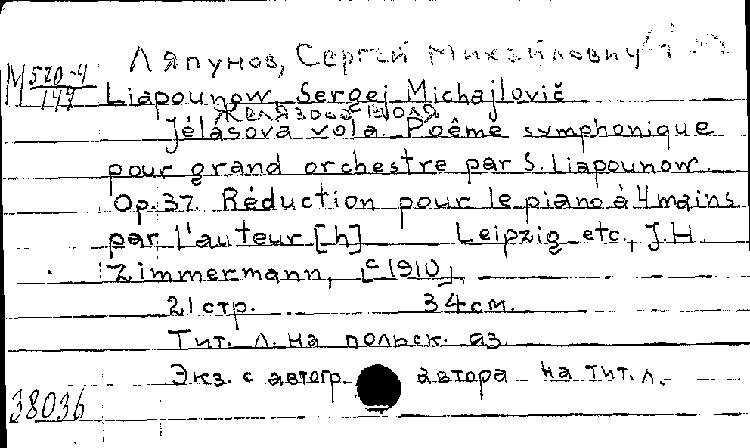 Ляпунов, Сергей Михайлович
М 520-4
147
Liapounow Sergej Michajlovič
Желязова Воля
Jélasova vola. Poême symphonique
pour grand orchestre par S. Liapounow.
Op. 37. Réduction pour le piano à 4 mains
par l'auteur [h] Leipzig etc., J.H.
Zimmermann, [c 1910].
21 стр. 34 см.
Тит. л. на польск. яз.
Экз. с автогр. автора на тит. л.
38036